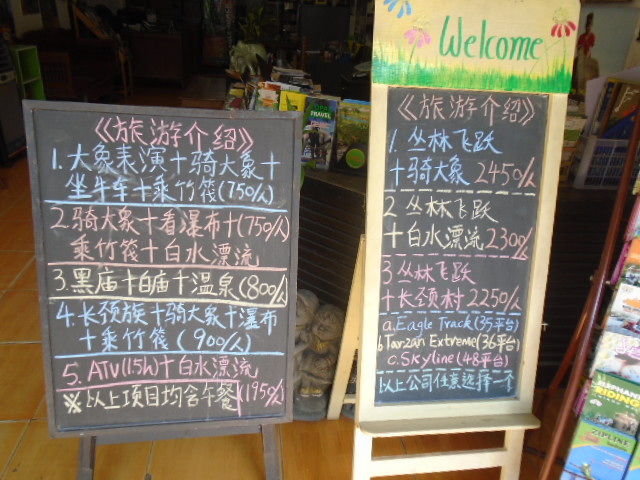 《旅游介绍》
1.大象表演十骑大象十
坐牛车十乘竹筏(750/人)
2.骑大象十看瀑布十(750/人)
乘竹筏十白水漂流
3.黑庙十白庙十温泉(800/人)
4.长颈族十骑大象十瀑布
十乘竹筏(900/人)
5.ATV(1.5h)十白水漂流
※以上项目均含午餐(1950/人)
Welcome
《旅游介绍》
1.丛林飞跃
十骑大象2450/人
2 丛林飞跃
十白水漂流2300/人
3 丛林飞跃
十长颈村2250/人
a.Eagle Track(35平台)
b.Tarzan Extreme(36平台)
c.Skyline(48平台)
以上公司任意选择一个
TRAVEL
ELEPHANT
RIDING
ZIPLINE